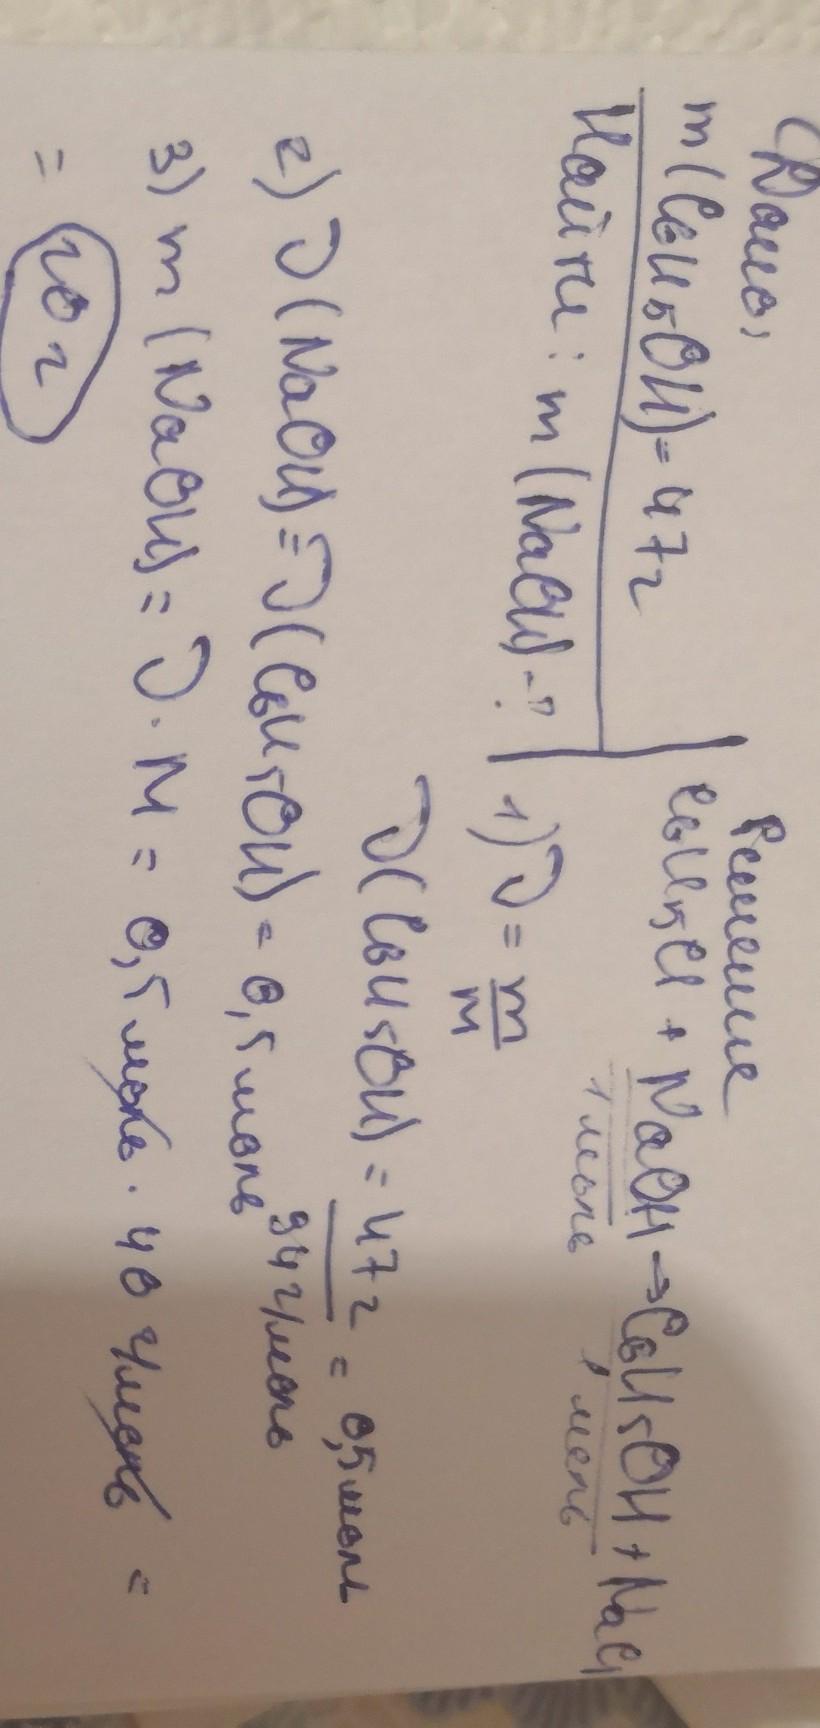 Дано:
m(C6H5OH)=47г
Найти: m(NaOH)-?
Решение
C6H5Cl + NaOH → C6H5OH + NaCl
1 моль 1 моль
1) ν = m/M
ν(C6H5OH) = 47г/94г/моль = 0,5моль
2) ν(NaOH)=ν(C6H5OH)=0,5моль
3) m(NaOH)= ν·M = 0,5моль·40г/моль =
= 20г